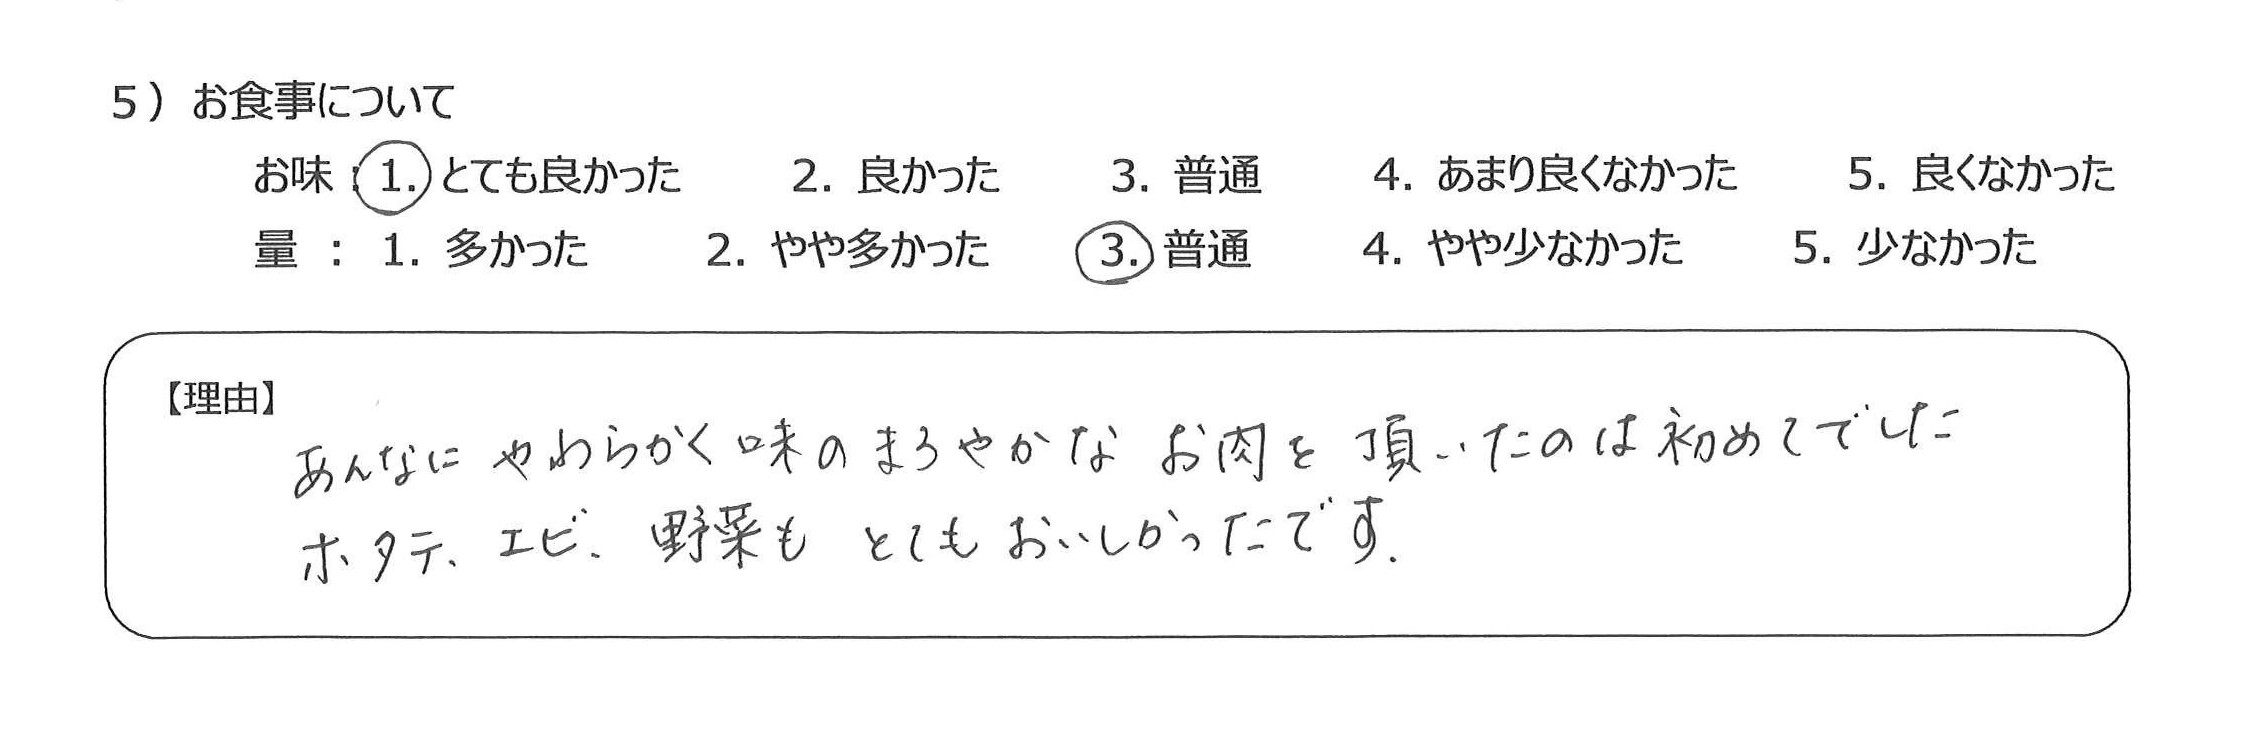 5）お食事について
お味：1. とても良かった 2. 良かった 3. 普通 4. あまり良くなかった 5. 良くなかった
量 ： 1. 多かった 2. やや多かった 3. 普通 4. やや少なかった 5. 少なかった
【理由】
あんなに やわらかく 味の まろやかな お肉を 頂いたのは初めてでした
ホタテ、エビ、野菜も とても おいしかったです.